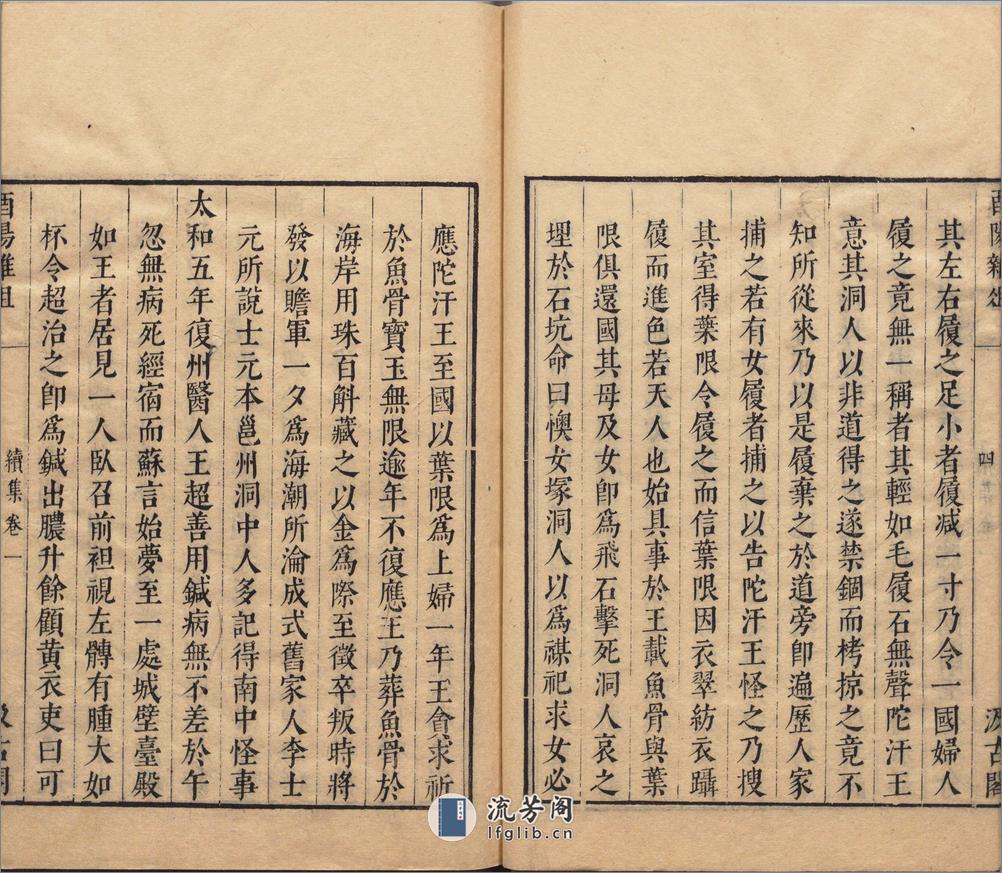 其左右履之足小者履减一寸乃令一國婦人
履之竟無一稱者其輕如毛履石無聲陀汗王
意其洞人以非道得之遂禁錮而栲掠之竟不
知所從來乃以是履棄之於道旁卽遍歷人家
捕之若有女履者捕之以告陀汗王怪之乃搜
其室得葉限令履之而信葉限因衣翠紡衣躡
履而進色若天人也始具事於王載魚骨與葉
限俱還國其母及女卽為飛石擊死洞人哀之
埋於石坑命曰懊女塚洞人以為禖祀求女必
應陀汗王至國以葉限為上婦一年王貪求祈
於魚骨寶玉無限逾年不復應王乃葬魚骨於
海岸用珠百斛藏之以金為際至徵卒叛時將
發以贍軍一夕為海潮所淪成式舊家人李士
元所說士元本邕州洞中人多記得南中怪事
太和五年復州醫人王超善用鍼病無不差於午
忽無病死經宿而蘇言始夢至一處城壁臺殿
如王者居見一人臥召前袒視左髆有腫大如
杯令超治之卽為鍼出膿升餘顧黃衣吏曰可
續集卷一
流芳阁
lfglib.cn